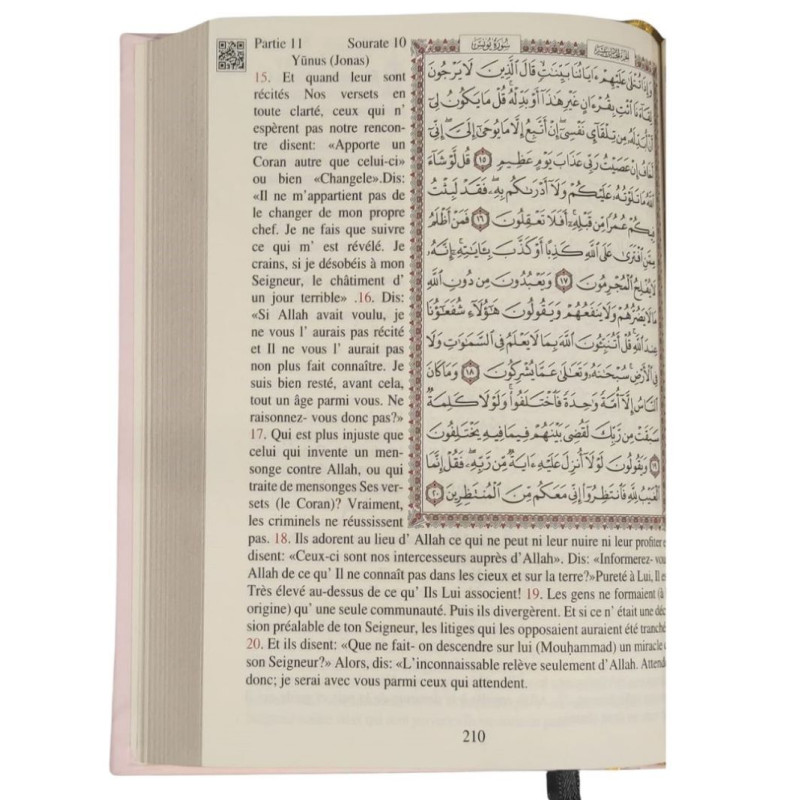 Partie 11 Sourate 10
Yūnus (Jonas)
15. Et quand leur sont
récités Nos versets en
toute clarté, ceux qui n’
espèrent pas notre rencon-
tre disent: «Apporte un
Coran autre que celui-ci»
ou bien «Changele».Dis:
«Il ne m’appartient pas de
le changer de mon propre
chef. Je ne fais que suivre
ce qui m’ est révélé. Je
crains, si je désobéis à mon
Seigneur, le châtiment d’
un jour terrible» .16. Dis:
«Si Allah avait voulu, je
ne vous l’ aurais pas récité
et Il ne vous l’ aurait pas
non plus fait connaître. Je
suis bien resté, avant cela,
tout un âge parmi vous. Ne
raisonnez- vous donc pas?»
17. Qui est plus injuste que
celui qui invente un men-
songe contre Allah, ou qui
traite de mensonges Ses ver-
sets (le Coran)? Vraiment,
les criminels ne réussissent
pas. 18. Ils adorent au lieu d’ Allah ce qui ne peut ni leur nuire ni leur profiter e
disent: «Ceux-ci sont nos intercesseurs auprès d’Allah». Dis: «Informerez- vou
Allah de ce qu’ Il ne connaît pas dans les cieux et sur la terre?»Pureté à Lui, Il e
Très élevé au-dessus de ce qu’ Ils Lui associent! 19. Les gens ne formaient (à
origine) qu’ une seule communauté. Puis ils divergèrent. Et si ce n’ était une déc
sion préalable de ton Seigneur, les litiges qui les opposaient auraient été tranché
20. Et ils disent: «Que ne fait- on descendre sur lui (Mouḥammad) un miracle
son Seigneur?» Alors, dis: «L’inconnaissable relève seulement d’Allah. Attend
donc; je serai avec vous parmi ceux qui attendent.
سُورَةُ يُونُسَ
وَإِذَا تُتْلَىٰ عَلَيْهِمْ ءَايَاتُنَا بَيِّنَٰتٍ قَالَ ٱلَّذِينَ لَا يَرْجُونَ
لِقَآءَنَا ٱئْتِ بِقُرْءَانٍ غَيْرِ هَٰذَآ أَوْ بَدِّلْهُ ۚ قُلْ مَا يَكُونُ لِىٓ
أَنْ أُبَدِّلَهُۥ مِن تِلْقَآئِ نَفْسِىٓ ۖ إِنْ أَتَّبِعُ إِلَّا مَا يُوحَىٰٓ إِلَىَّ ۖ إِنِّىٓ
أَخَافُ إِنْ عَصَيْتُ رَبِّى عَذَابَ يَوْمٍ عَظِيمٍ ١٥ قُل لَّوْ شَآءَ
ٱللَّهُ مَا تَلَوْتُهُۥ عَلَيْكُمْ وَلَآ أَدْرَىٰكُم بِهِۦ ۖ فَقَدْ لَبِثْتُ
فِيكُمْ عُمُرًا مِّن قَبْلِهِۦٓ ۚ أَفَلَا تَعْقِلُونَ ١٦ فَمَنْ أَظْلَمُ
مِمَّنِ ٱفْتَرَىٰ عَلَى ٱللَّهِ كَذِبًا أَوْ كَذَّبَ بِـَٔايَٰتِهِۦٓ ۚ إِنَّهُۥ
لَا يُفْلِحُ ٱلْمُجْرِمُونَ ١٧ وَيَعْبُدُونَ مِن دُونِ ٱللَّهِ
مَا لَا يَضُرُّهُمْ وَلَا يَنفَعُهُمْ وَيَقُولُونَ هَٰٓؤُلَآءِ شُفَعَٰٓؤُنَا
عِندَ ٱللَّهِ ۚ قُلْ أَتُنَبِّـُٔونَ ٱللَّهَ بِمَا لَا يَعْلَمُ فِى ٱلسَّمَٰوَٰتِ وَلَا
فِى ٱلْأَرْضِ ۚ سُبْحَٰنَهُۥ وَتَعَٰلَىٰ عَمَّا يُشْرِكُونَ ١٨ وَمَا كَانَ
ٱلنَّاسُ إِلَّآ أُمَّةً وَٰحِدَةً فَٱخْتَلَفُوا۟ ۚ وَلَوْلَا كَلِمَةٌ
سَبَقَتْ مِن رَّبِّكَ لَقُضِىَ بَيْنَهُمْ فِيمَا فِيهِ يَخْتَلِفُونَ
١٩ وَيَقُولُونَ لَوْلَآ أُنزِلَ عَلَيْهِ ءَايَةٌ مِّن رَّبِّهِۦ ۖ فَقُلْ إِنَّمَا
ٱلْغَيْبُ لِلَّهِ فَٱنتَظِرُوٓا۟ إِنِّى مَعَكُم مِّنَ ٱلْمُنتَظِرِينَ ٢٠
210